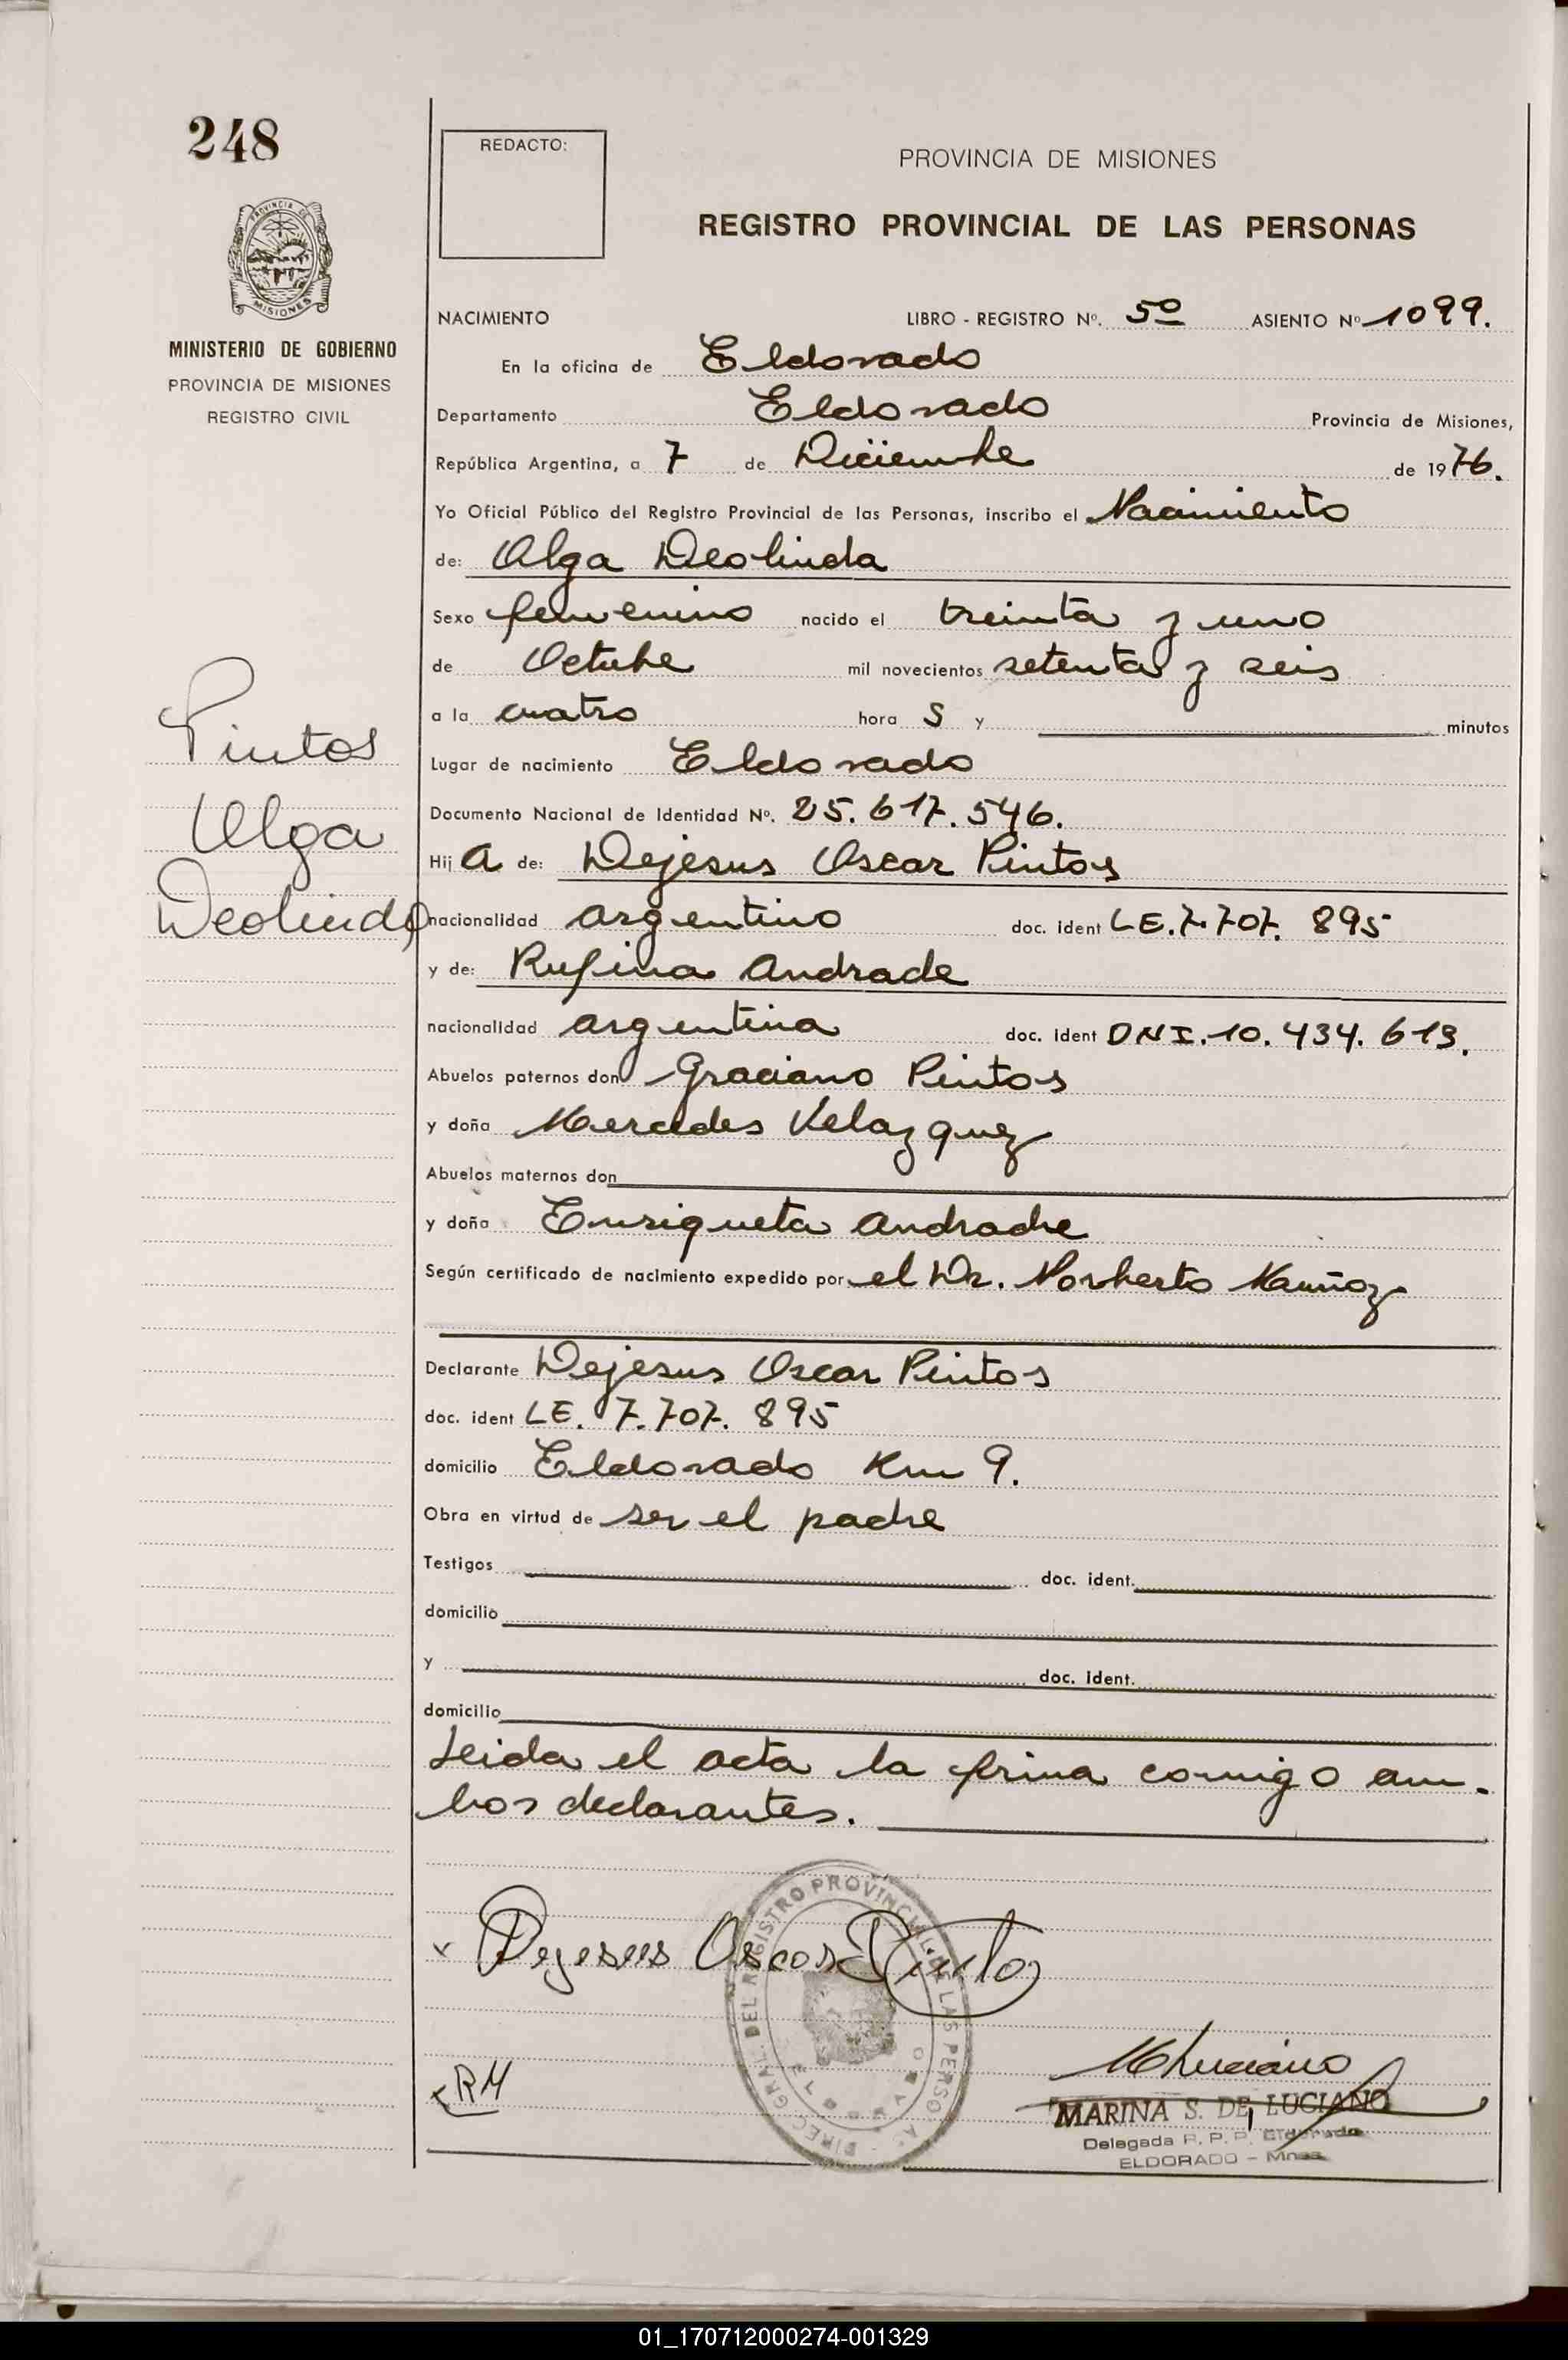 248
REDACTO:
PROVINCIA DE MISIONES
REGISTRO PROVINCIAL DE LAS PERSONAS
PROVINCIA DE
MISIONES
MINISTERIO DE GOBIERNO
PROVINCIA DE MISIONES
REGISTRO CIVIL
NACIMIENTO LIBRO - REGISTRO Nº. 5º ASIENTO Nº 1099.
En la oficina de Eldorado
Departamento Eldorado Provincia de Misiones,
República Argentina, a 7 de Diciembre de 1976.
Yo Oficial Público del Registro Provincial de las Personas, inscribo el Nacimiento
de: Olga Deolinda
Sexo femenino nacido el treinta y uno
de Octubre mil novecientos setenta y seis
a la cuatro hora s y minutos
Pintos
Olga
Deolinda
Lugar de nacimiento Eldorado
Documento Nacional de Identidad Nº. 25.617.546.
Hij a de: Dejesus Oscar Pintos
nacionalidad argentino doc. ident LE.7.707.895
y de: Rufina Andrade
nacionalidad argentina doc. ident DNI.10.434.613.
Abuelos paternos don Graciano Pintos
y doña Mercedes Velazquez
Abuelos maternos don
y doña Enriqueta Andrade
Según certificado de nacimiento expedido por el Dr. Norberto Muñoz
Declarante Dejesus Oscar Pintos
doc. ident LE. 7.707.895
domicilio Eldorado Km 9.
Obra en virtud de ser el padre
Testigos doc. ident.
domicilio
y doc. ident.
domicilio
Leida el acta la firma comigo am-
bos declarantes.
x Dejesus Oscar Pintos
DIREC. GRAL. DEL REGISTRO PROVINCIAL DE LAS PERSO
ELDORADO
RM
MLuciano
MARINA S. DE LUCIANO
Delegada R. P. P. Eldorado
ELDORADO - Mnes.
01_170712000274-001329